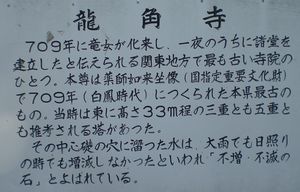 龍角寺
709年に竜女が化来し、一夜のうちに諸堂を
建立したと伝えられる関東地方で最も古い寺院の
ひとつ。本尊は薬師如来坐像(国指定重要文化財)
で709年(白鳳時代)につくられた本県最古の
もの。当時は東に高さ33m程の三重とも五重と
も推考される塔があった。
その中心礎の穴に溜った水は、大雨でも日照り
の時でも増減しなかったといわれ「不増・不滅の
石」とよばれている。